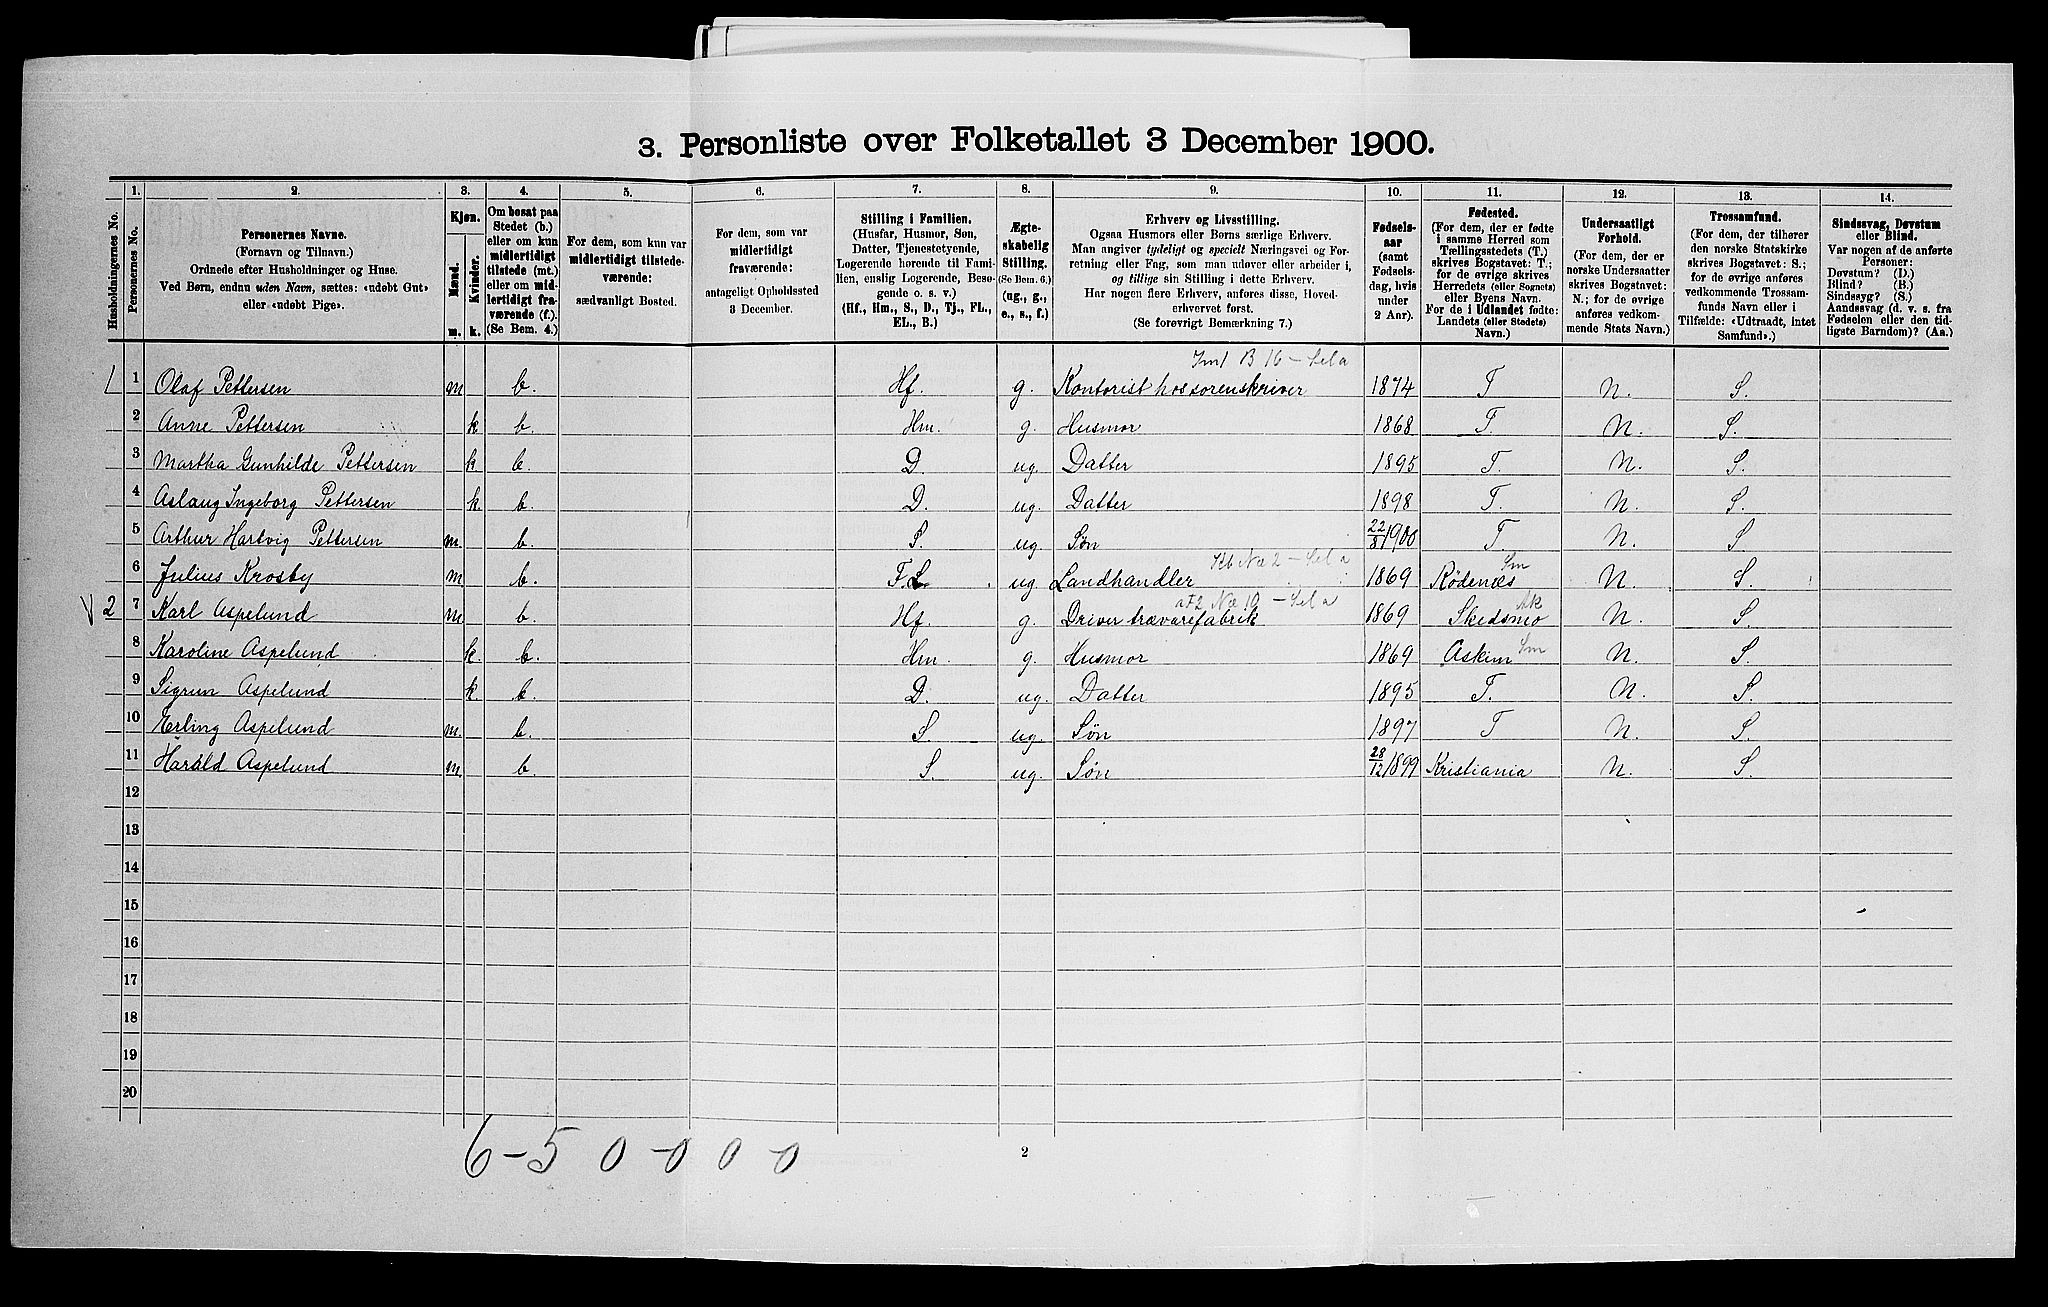 3. Personliste over Folketallet 3 December 1900.
Husholdningernes No.
1.
Personernes No.
2.
Personernes Navne.
(Fornavn og Tilnavn.)
Ordnede efter Husholdninger og Huse.
Ved Børn, endnu uden Navn, sættes: «udøbt Gut»
eller «udøbt Pige».
3.
Kjøn.
Mænd.
Kvinder.
m.
k.
4.
Om bosat paa
Stedet (b.)
eller om kun
midlertidigt
tilstede (mt.)
eller om mid-
lertidigt fra-
værende (f.).
(Se Bem. 4.)
5.
For dem, som kun var
midlertidigt tilstede-
værende:
sædvanligt Bosted.
6.
For dem, som var
midlertidigt
fraværende:
antageligt Opholdssted
3 December.
7.
Stilling i Familien.
(Husfar, Husmor, Søn,
Datter, Tjenestetyende,
Logerende hørende til Fami-
lien, enslig Logerende, Besø-
gende o. s. v.)
(Hf., Hm., S., D., Tj., FL.,
EL., B.)
8.
Ægte-
skabelig
Stilling.
(Se Bem. 6.)
(ug., g.,
e., s., f.)
9.
Erhverv og Livsstilling.
Ogsaa Husmors eller Børns særlige Erhverv.
Man angiver tydeligt og specielt Næringsvei og For-
retning eller Fag, som man udøver eller arbeider i,
og tillige sin Stilling i dette Erhverv.
Har nogen flere Erhverv, anføres disse, Hoved-
erhvervet først.
(Se forøvrigt Bemærkning 7.)
10.
Fødsels-
aar
(samt
Fødsels-
dag, hvis
under
2 Aar).
11.
Fødested.
(For dem, der er fødte
i samme Herred som
Tællingsstedets (T.)
skrives Bogstavet: T.;
for de øvrige skrives
Herredets (eller Sognets)
eller Byens Navn.
For de i Udlandet fødte:
Landets (eller Stedets)
Navn.)
12.
Undersaatligt
Forhold.
(For dem, der er
norske Undersaatter
skrives Bogstavet:
N.; for de øvrige
anføres vedkom-
mende Stats Navn.)
13.
Trossamfund.
(For dem, der tilhører
den norske Statskirke
skrives Bogstavet: S.;
for de øvrige anføres
vedkommende Trossam-
funds Navn eller i
Tilfælde: «Udtraadt, intet
Samfund».)
14.
Sindssvag, Døvstum
eller Blind.
Var nogen af de anførte
Personer:
Døvstum? (D.)
Blind? (B.)
Sindssyg? (S.)
Aandssvag (d. v. s. fra
Fødselen eller den tid-
ligste Barndom)? (Aa.)
B 16 –
1 1 Olaf Pettersen m b. Hf. g. Kontorist hos sorenskriver 1874 T N. S.
2 Anne Pettersen k b. Hm. g. Husmor 1868 T. N. S.
3 Martha Gunhilde Pettersen k. b. D. ug. Datter 1895 T. N. S.
4 Aslaug Ingeborg Pettersen k. b. D. ug. Datter 1898 T. N. S.
5 Arthur Hartvig Pettersen m. b. S. ug. Søn 22/8 1900 T N. S.
2 – Sm
6 Julius Krosby m b. F.L. ug Landhandler 1869 Rødenæs N. S.
10 – Ak
2 7 Karl Aspelund m. b. Hf. g. Driver trævarefabrik 1869 Skedsmo N. S.
8 Karoline Aspelund k. b. Hm. g. Husmor 1869 Askim Sm N. S.
9 Sigrun Aspelund k. b. D. ug. Datter 1895 T. N. S.
10 Erling Aspelund m. b. S. ug. Søn 1897 T N. S.
11 Harald Aspelund m b. S. ug. Søn 28/12 1899 Kristiania N. S.
12
13
14
15
16
17
18
19
20
6 – 5 0 – 0 0 – 0
2